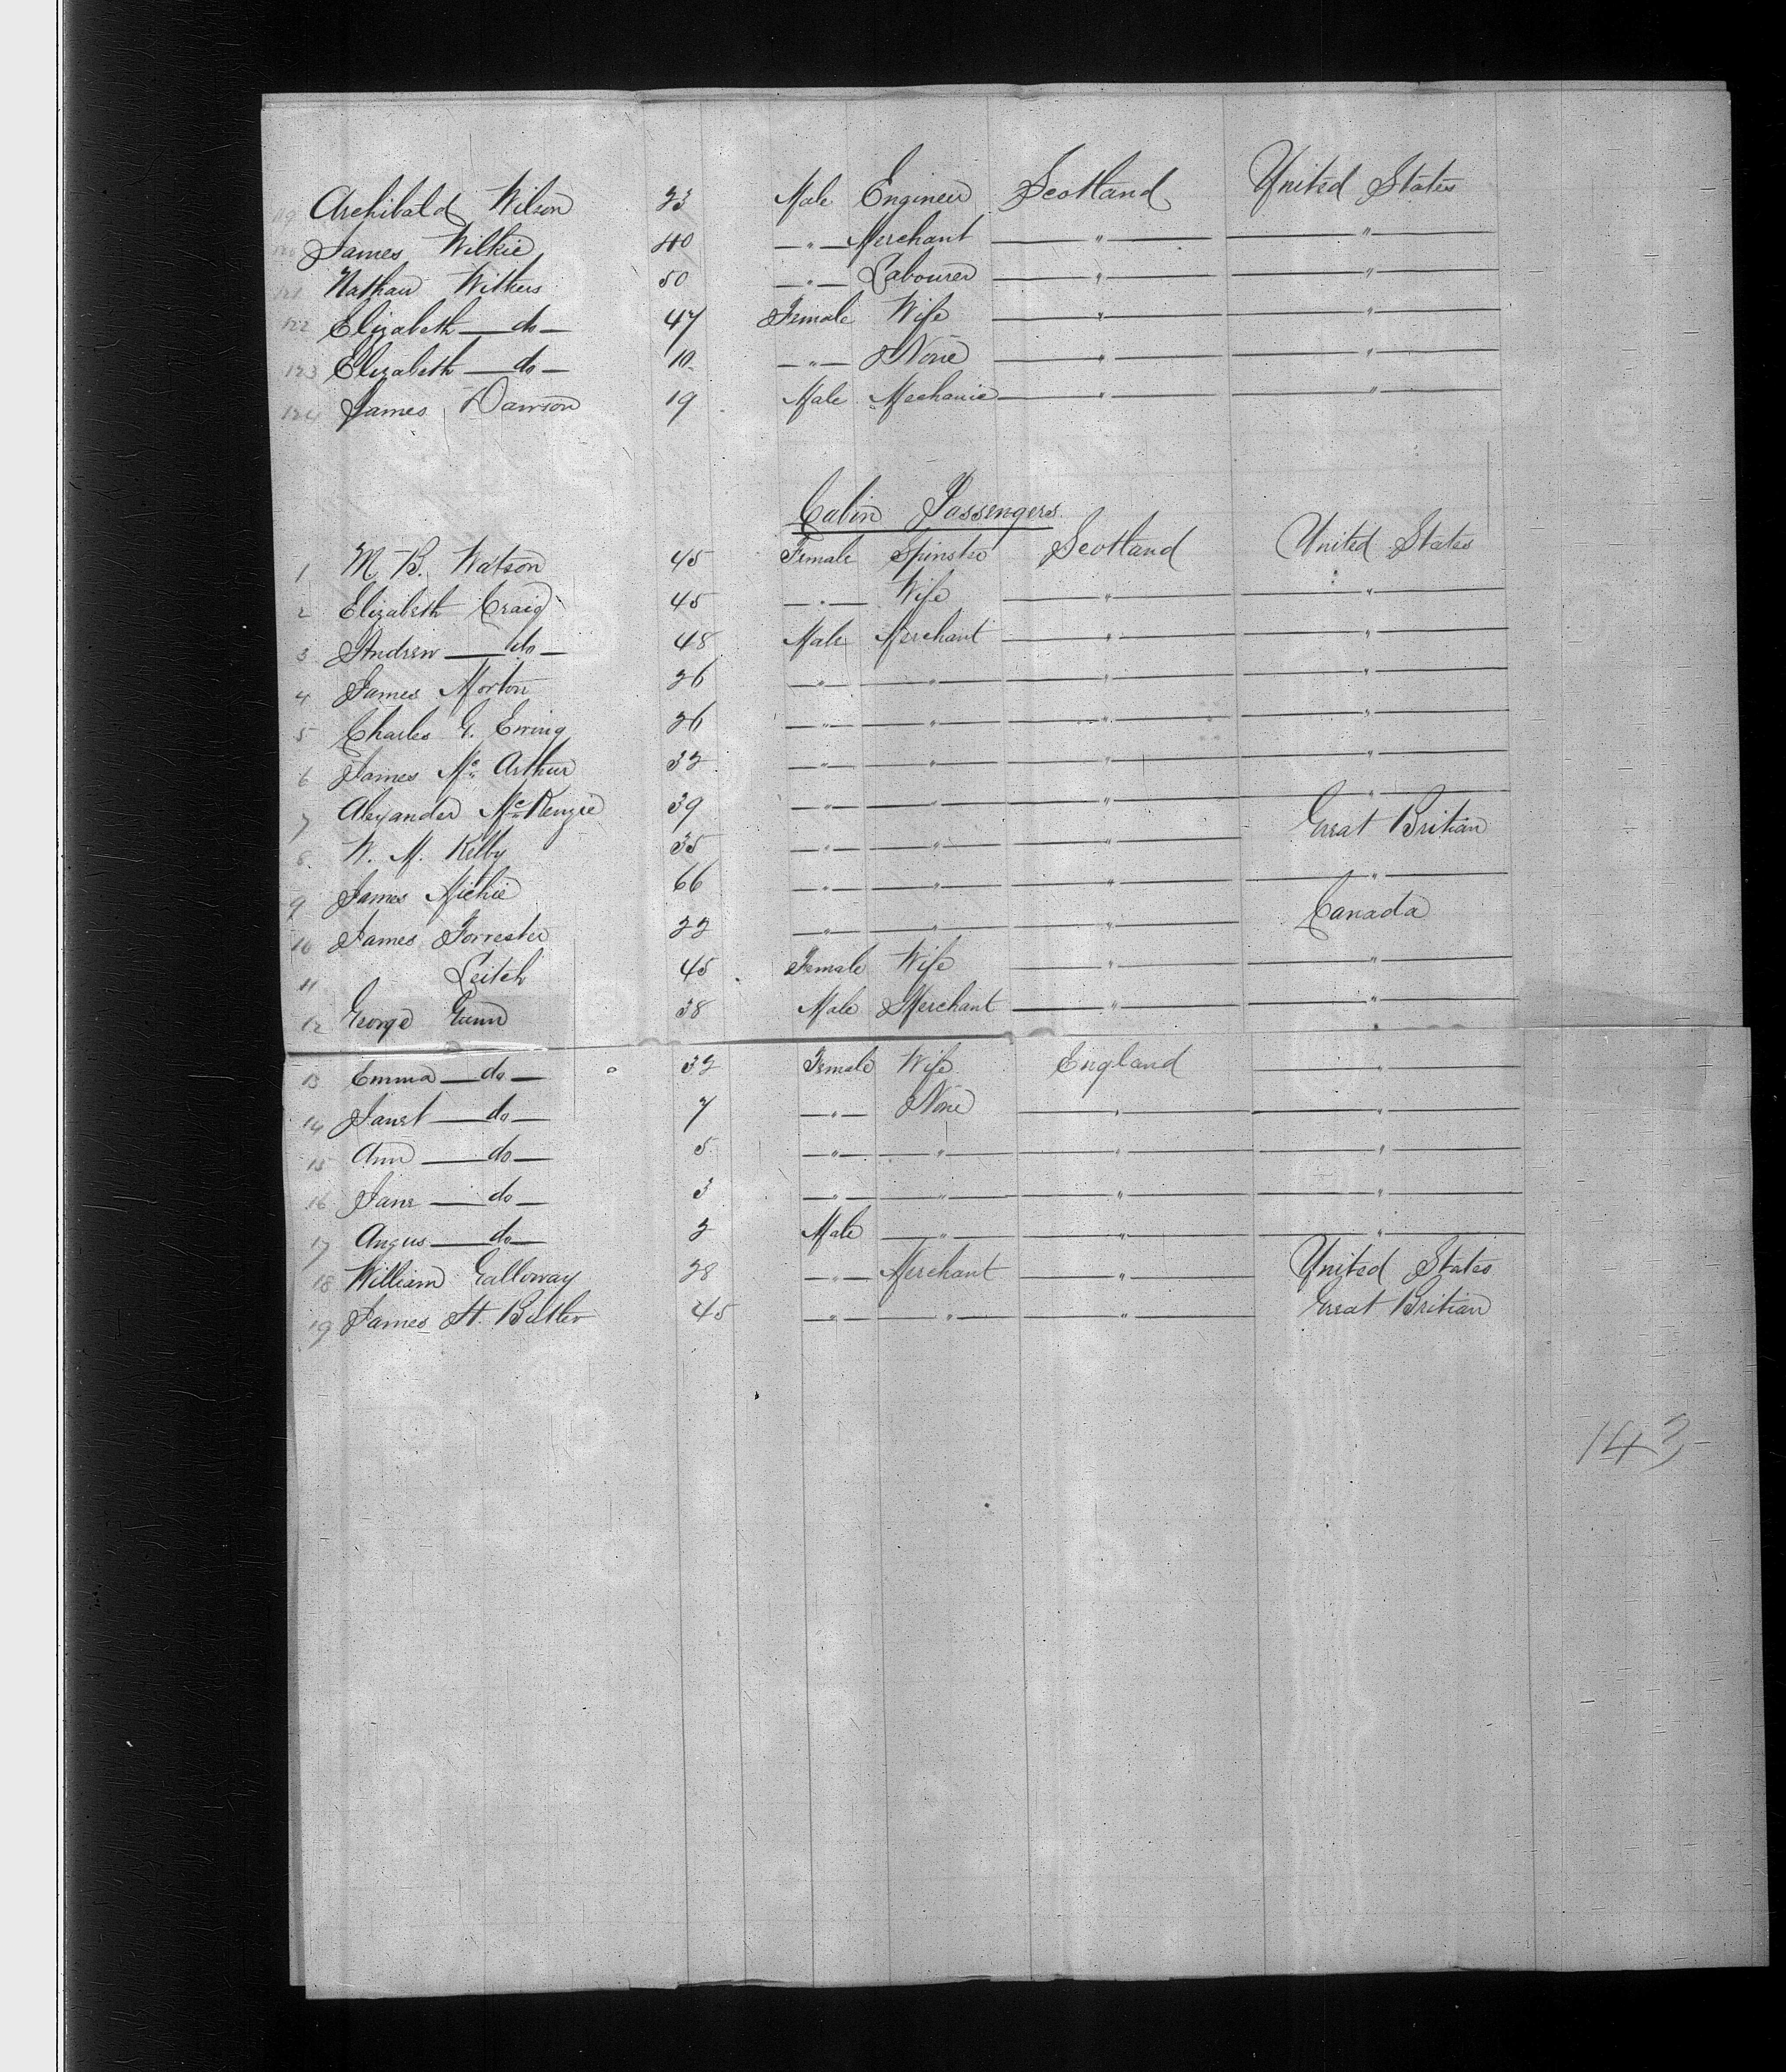 119 Archibald Wilson 23 Male Engineer Scotland United States
120 James Wilkie 40 —"— Merchant —"— —"—
121 Nathan Withers 50 —"— Labourer —"— —"—
122 Elizabeth —do— 47 Female Wife —"— —"—
123 Elizabeth —do— 10 —"— None —"— —"—
124 James Dawson 19 Male Mechanic —"— —"—
Cabin Passengers
1 M. B. Watson 45 Female Spinster Scotland United States
2 Elizabeth Craig 45 —"— Wife —"— —"—
3 Andrew —do— 48 Male Merchant —"— —"—
4 James Morton 26 —"— —"— —"— —"—
5 Charles G. Ewing 26 —"— —"— —"— —"—
6 James Mc Arthur 32 —"— —"— —"— —"—
7 Alexander McKenzie 39 —"— —"— —"— —"—
8 W. M. Kelby 35 —"— —"— —"— Great Britian
9 James Michie 66 —"— —"— —"— —"—
10 James Forrester 22 —"— —"— —"— Canada
11 Leitch 45 Female Wife —"— —"—
12 George Gunn 38 Male Merchant —"— —"—
13 Emma —do— 32 Female Wife England —"—
14 Janet —do— 7 —"— None —"— —"—
15 Ann —do— 5 —"— —"— —"— —"—
16 Jane —do— 3 —"— —"— —"— —"—
17 Angus —do— 2 Male —"— —"— —"—
18 William Galloway 28 —"— Merchant —"— United States
19 James H. Butler 45 —"— —"— —"— Great Britian
143